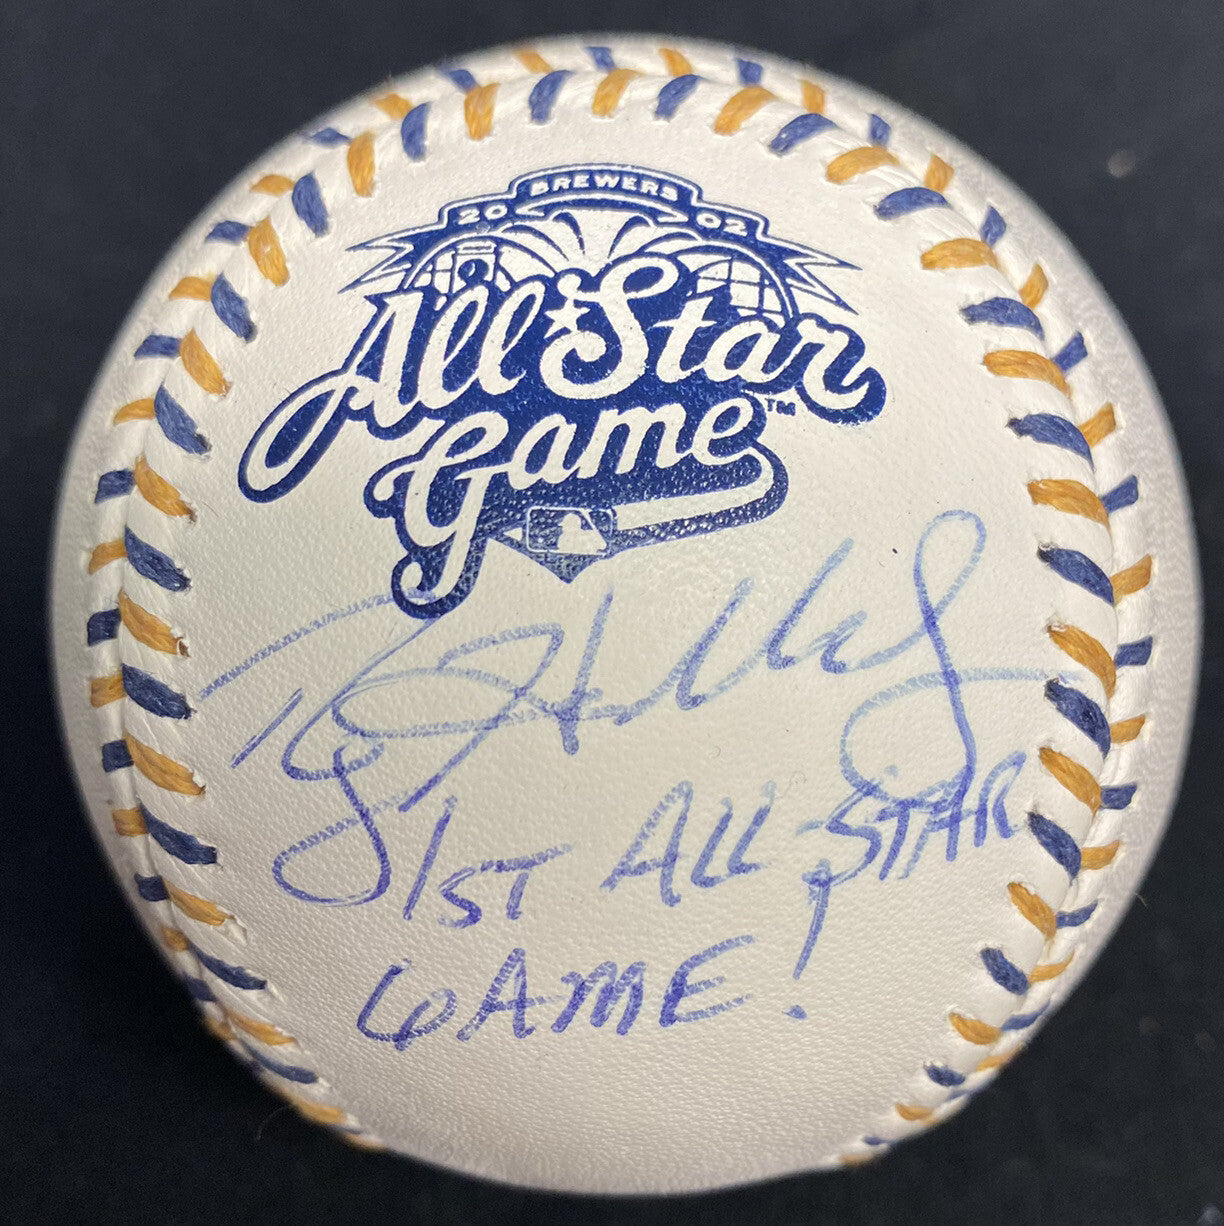 BREWERS
2002
All Star
Game™
1ST ALL-STAR
GAME!